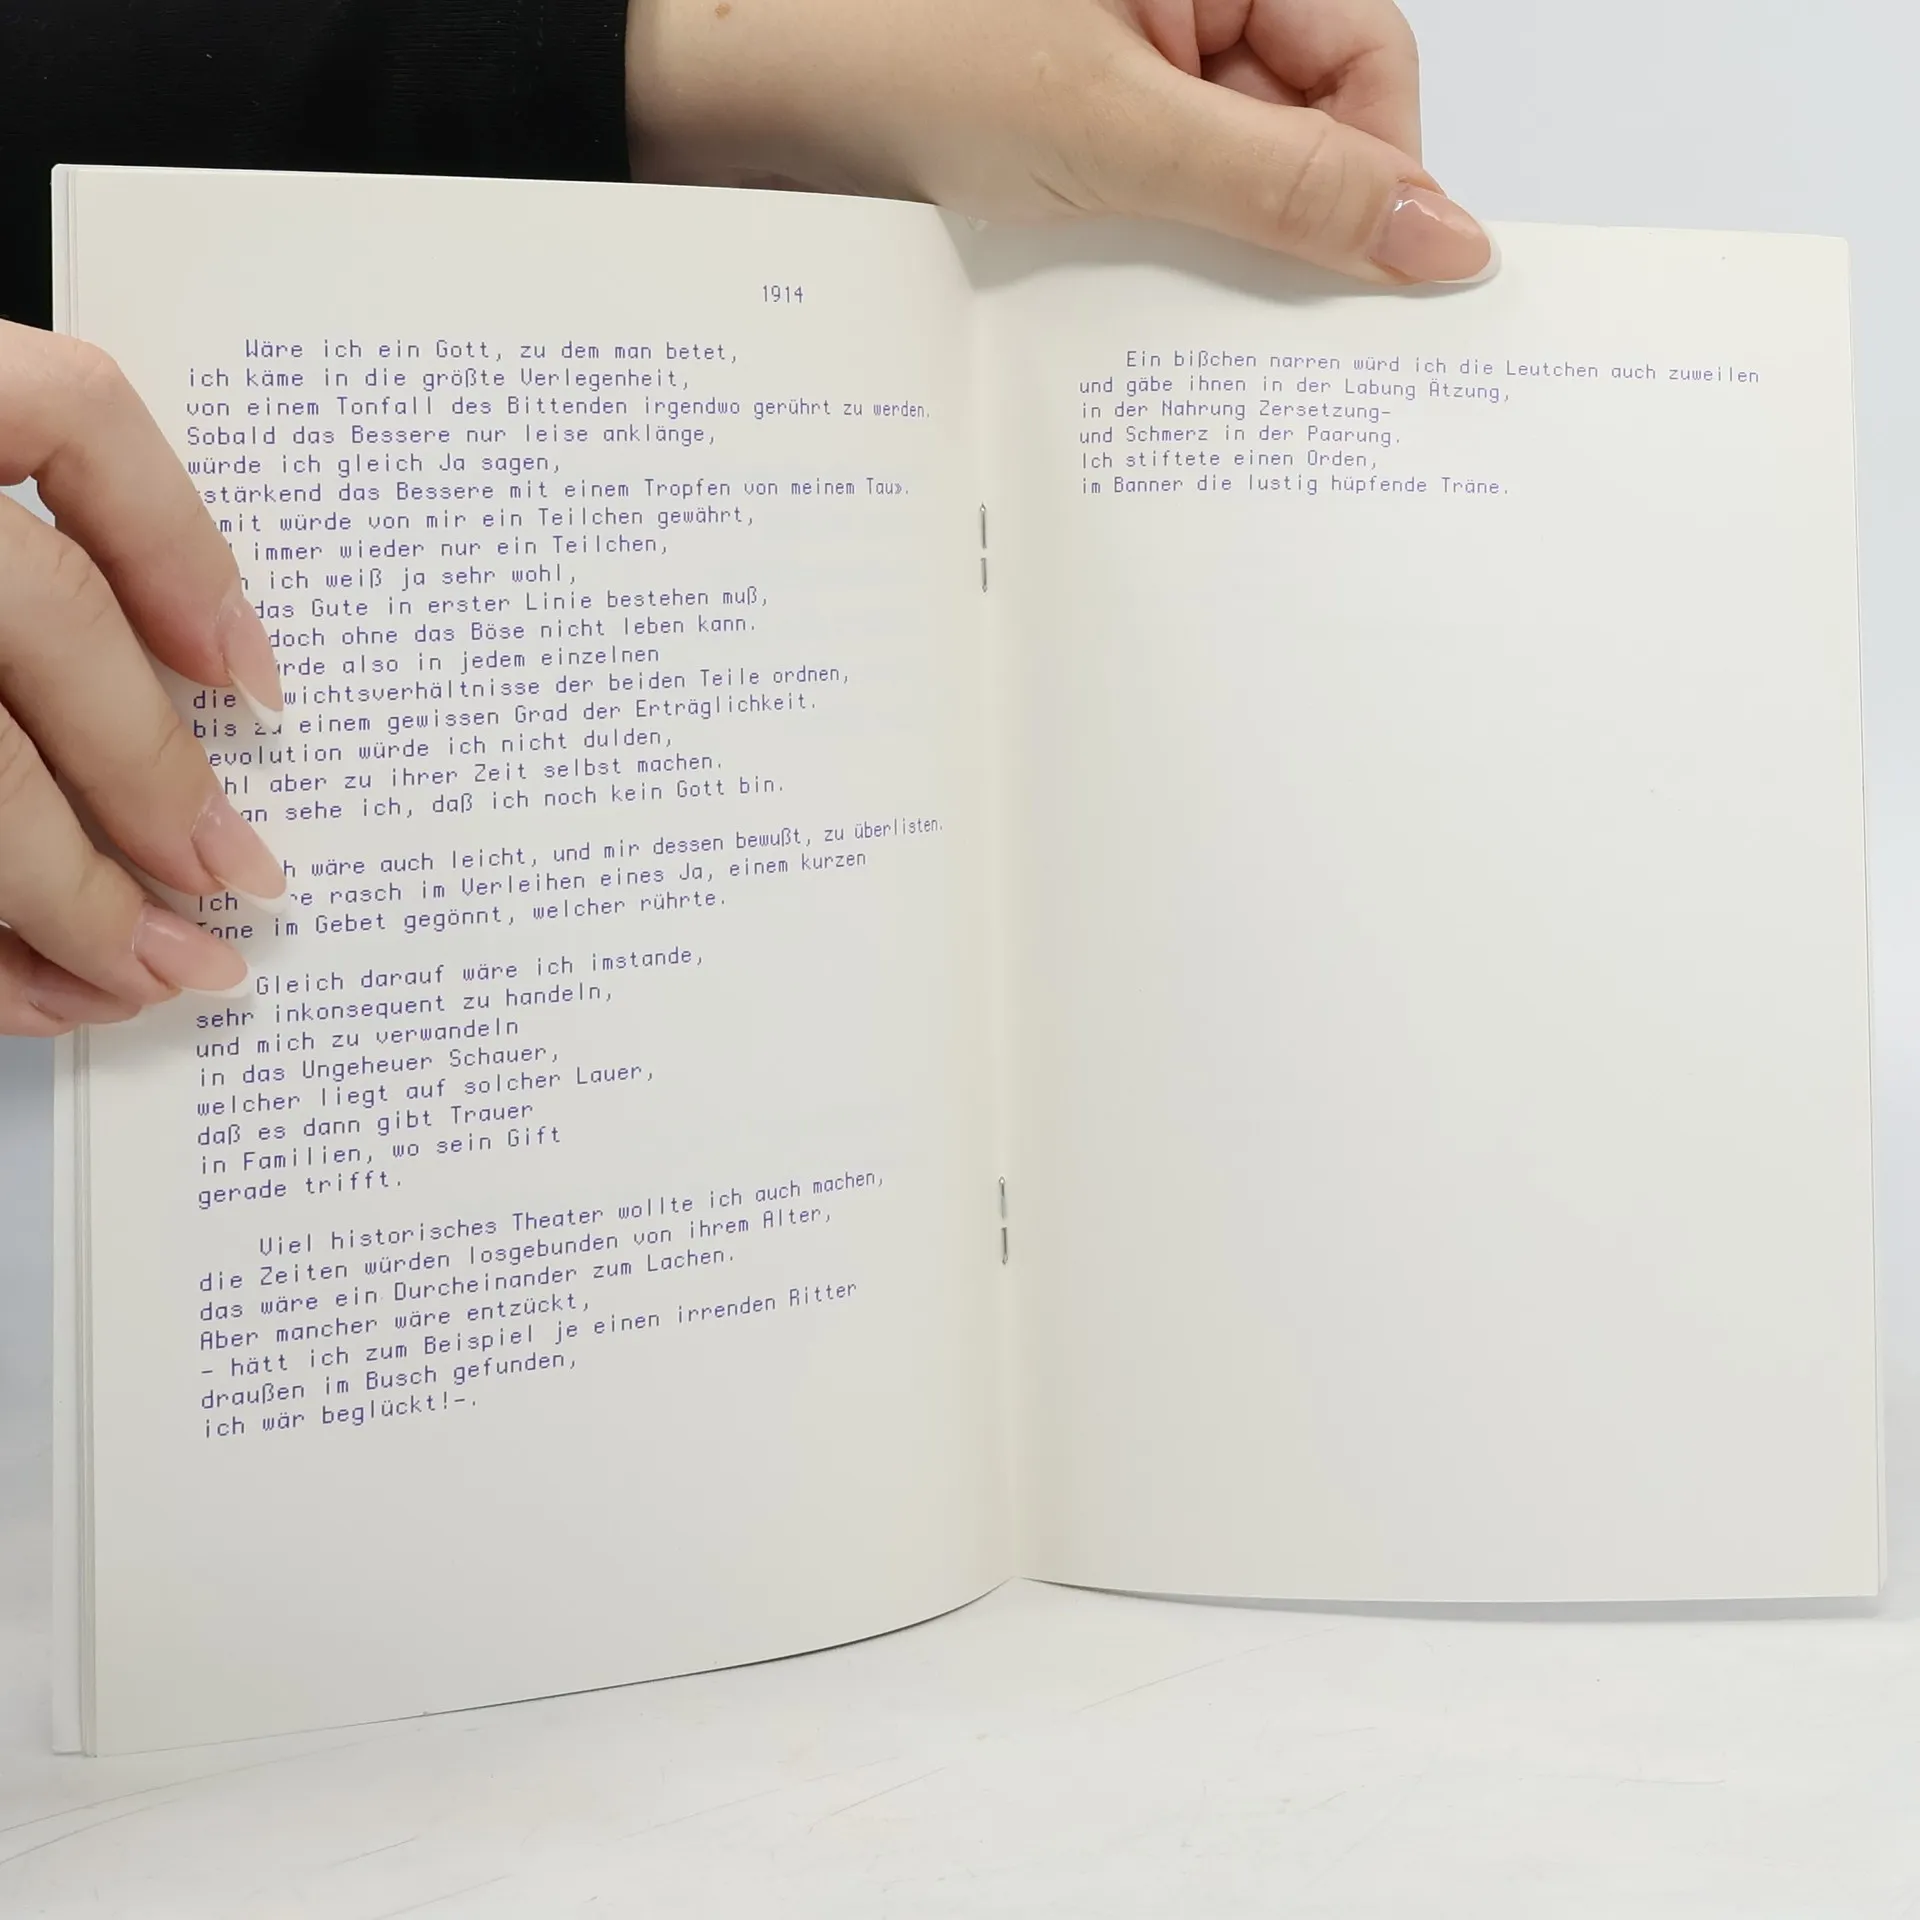 1914
Wäre ich ein Gott, zu dem man betet,
ich käme in die größte Verlegenheit,
von einem Tonfall des Bittenden irgendwo gerührt zu werden.
Sobald das Bessere nur leise anklänge,
würde ich gleich Ja sagen,
stärkend das Bessere mit einem Tropfen von meinem Tau».
würde von mir ein Teilchen gewährt,
immer wieder nur ein Teilchen,
ich weiß ja sehr wohl,
das Gute in erster Linie bestehen muß,
doch ohne das Böse nicht leben kann.
also in jedem einzelnen
die wichtsverhältnisse der beiden Teile ordnen,
bis zu einem gewissen Grad der Erträglichkeit.
evolution würde ich nicht dulden,
hl aber zu ihrer Zeit selbst machen.
an sehe ich, daß ich noch kein Gott bin.
wäre auch leicht, und mir dessen bewußt, zu überlisten.
Ich rasch im Verleihen eines Ja, einem kurzen
Tone im Gebet gegönnt, welcher rührte.
Gleich darauf wäre ich imstande,
sehr inkonsequent zu handeln,
und mich zu verwandeln
in das Ungeheuer Schauer,
welcher liegt auf solcher Lauer,
daß es dann gibt Trauer
in Familien, wo sein Gift
gerade trifft.
Viel historisches Theater wollte ich auch machen,
die Zeiten würden losgebunden von ihrem Alter,
das wäre ein Durcheinander zum Lachen.
Aber mancher wäre entzückt,
– hätt ich zum Beispiel je einen irrenden Ritter
draußen im Busch gefunden,
ich wär beglückt!–.
Ein bißchen narren würd ich die Leutchen auch zuweilen
und gäbe ihnen in der Labung Ätzung,
in der Nahrung Zersetzung–
und Schmerz in der Paarung.
Ich stiftete einen Orden,
im Banner die lustig hüpfende Träne.